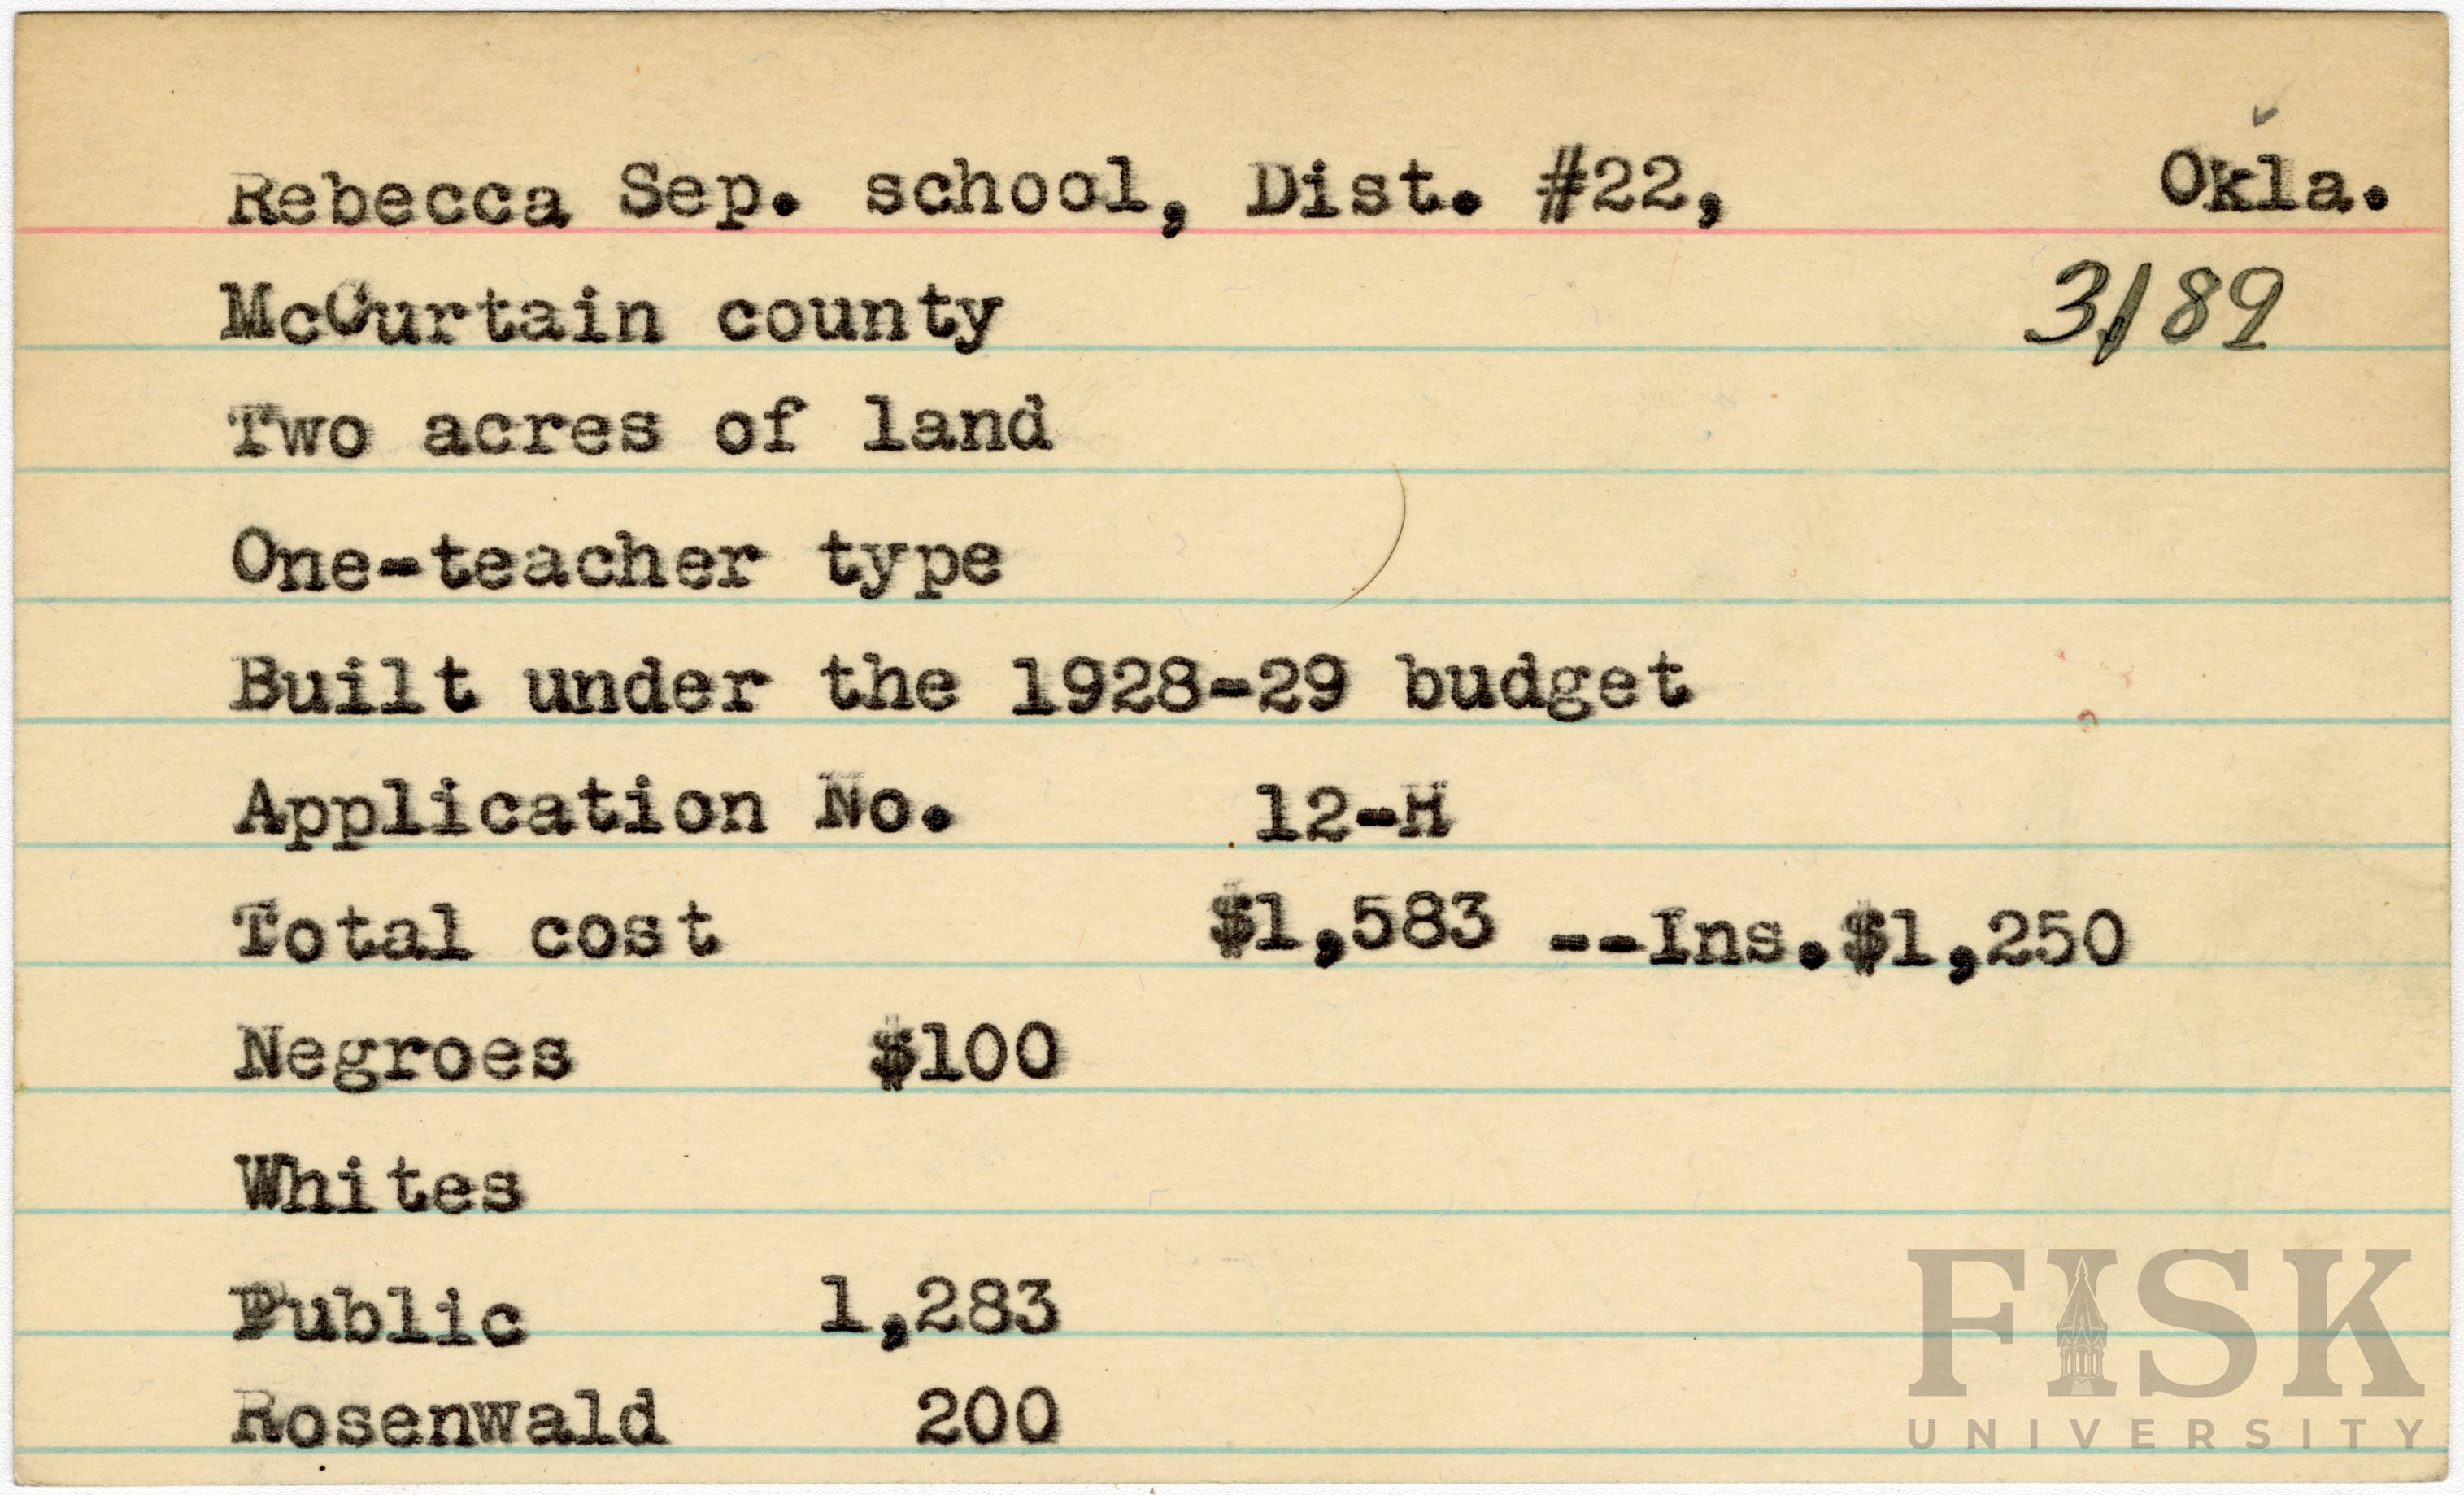 Rebecca Sep. school, Dist. #22, Okla.
McCurtain county 3189
Two acres of land
One-teacher type
Built under the 1928-29 budget
Application No. 12-H
Total cost $1,583 --Ins.$1,250
Negroes $100
Whites
Public 1,283
Rosenwald 200
FISK
UNIVERSITY